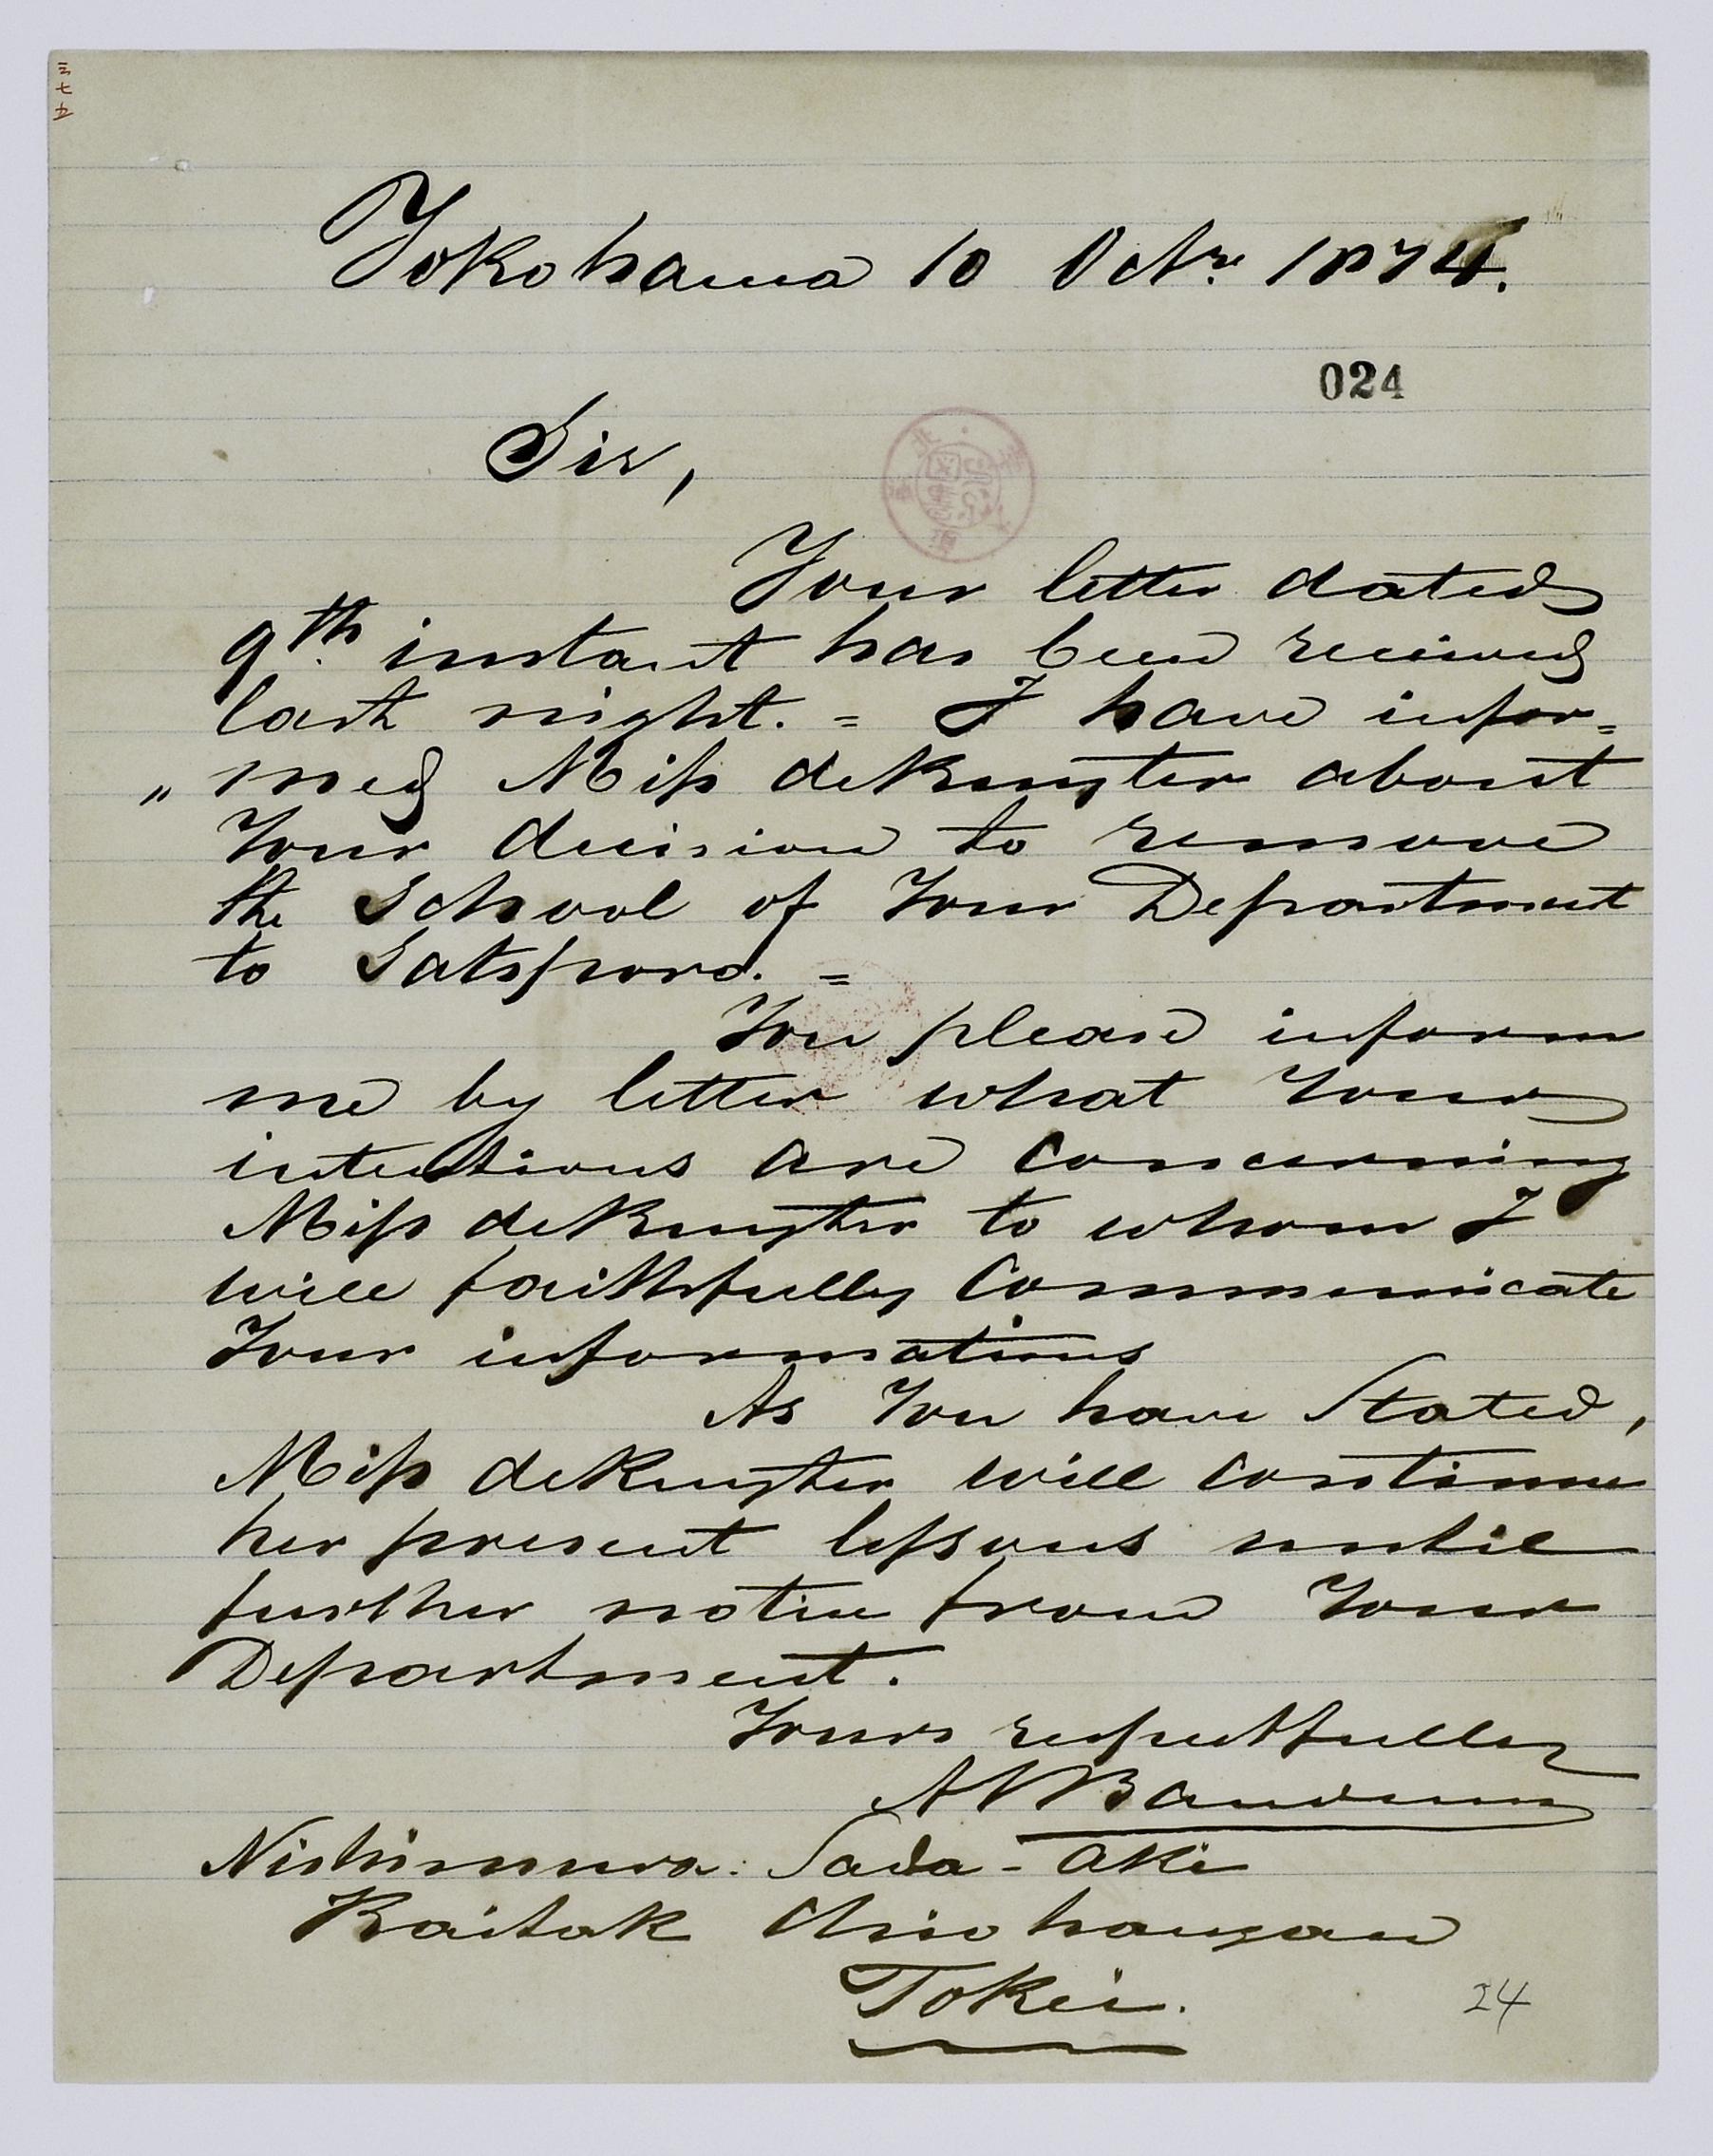 三七五
Yokohama 10 Octr. 1874.
024
Sir,
Your letter dated
9th. instant has been received
last night. = I have infor=
" med Miss deRuyter about
Your decision to remove
the School of Your Department
to Satsporo. =
You please inform
me by letter what Your
intentions are concerning
Miss deRuyter to whom I
will faithfully Communicate
Your informations
As You have Stated,
Miss deRuyter will continue
her present lessons untill
further notice from Your
Department.
Yours respectfully
Nishimura: Sada-aki
Kaitak
Tokei.
24